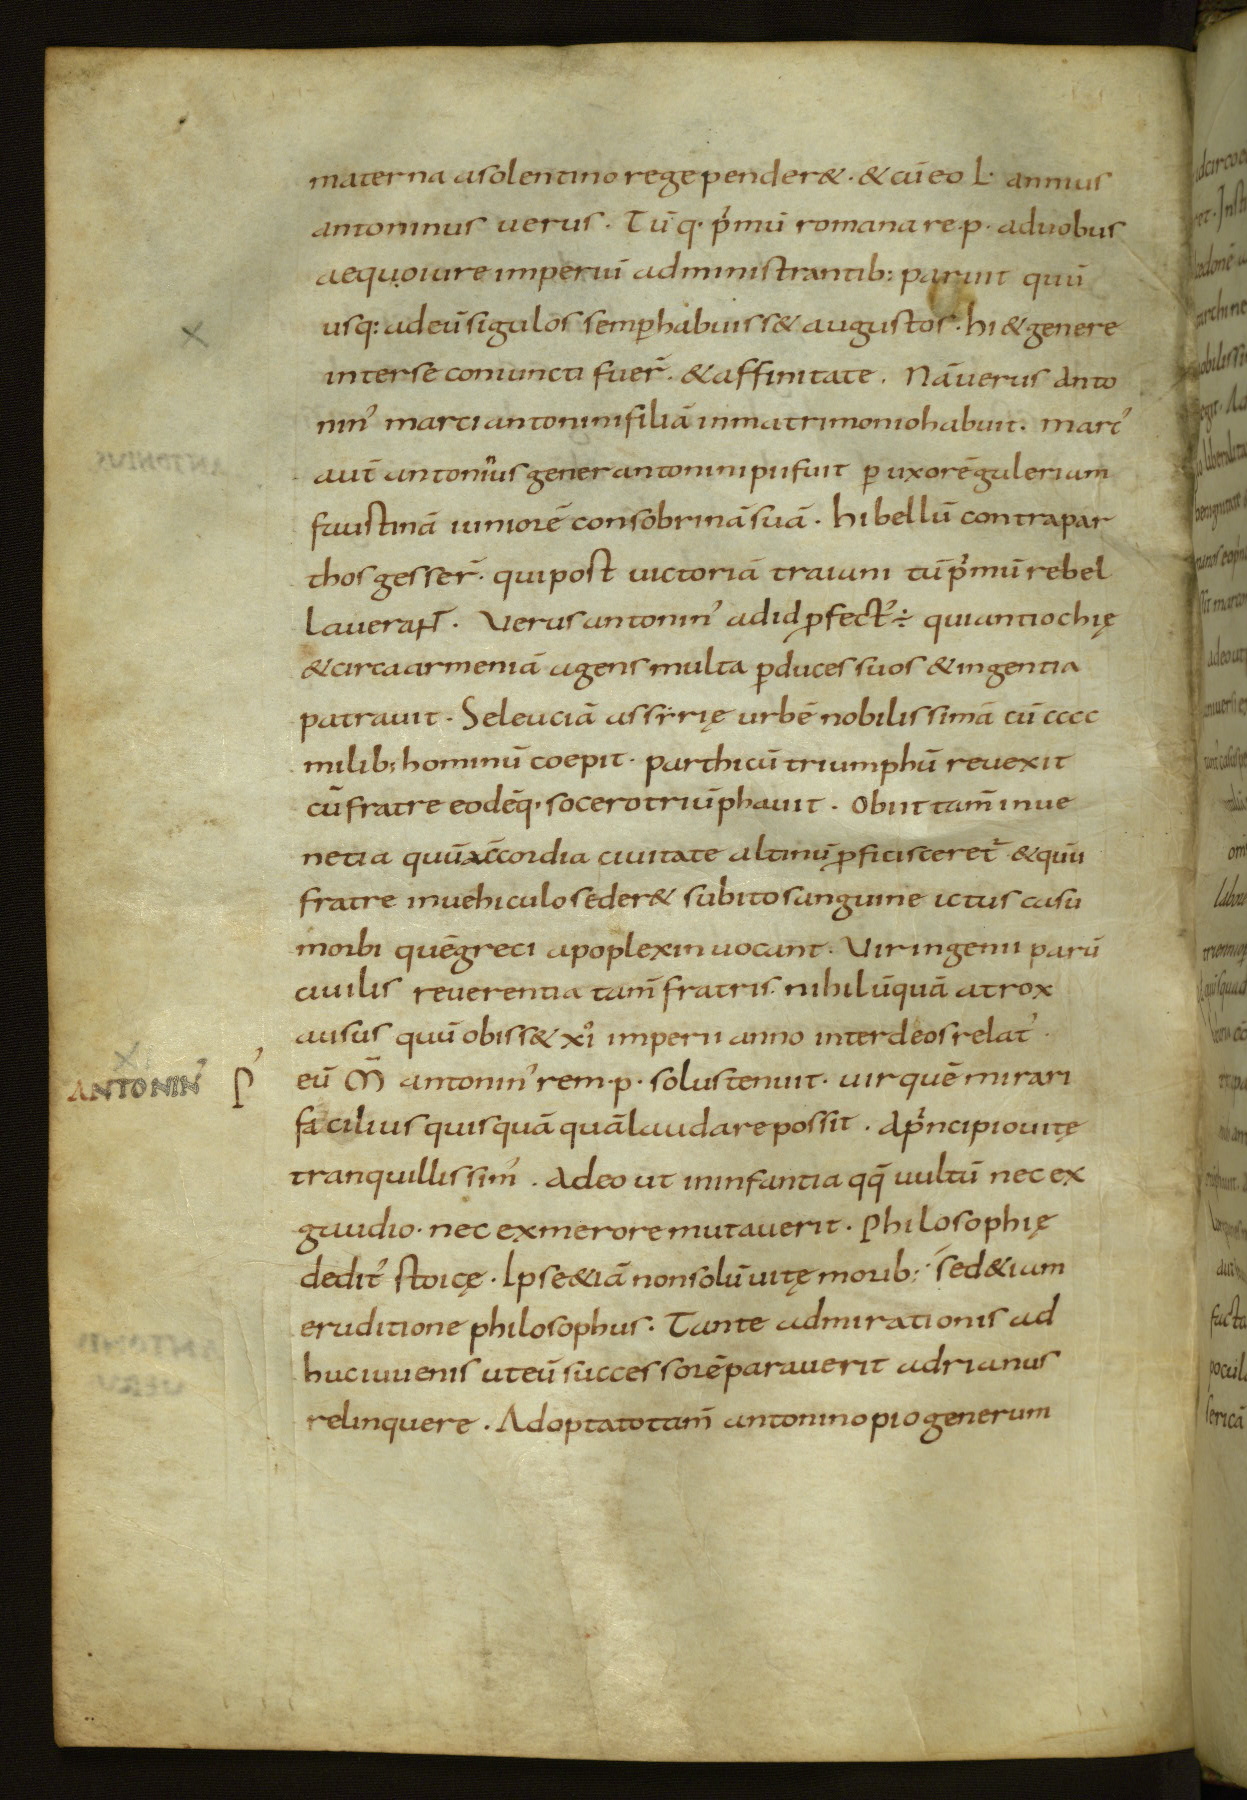 materna asolentino rege pender&. & cū eo L. annius
antoninus uerus. Tū q. p̓mū romana re.p. aduobus
aequo iure imperiū administrantib: paruit quū
usq: ad eū sigulos semp habuiss& augustos. hi & genere
inter se coniuncti fuer̄. & affinitate. Nā uerus anto
nin᾽ marci antonini filiā in matrimonio habuit. marc᾽
aut̄ antoninus gener antonini pii fuit p uxorē galeriam
faustinā iuniorē consobrinā suā. hi bellū contra par
thos gesser̄. qui post uictoriā traiani tū p̓mū rebel
lauerant̄. Uerus antonin᾽ ad id pfect᾽ ÷ qui antiochię
& circa armeniā agens multa p duces suos & ingentia
patrauit. Seleuciā assyrię urbē nobilissimā cū cccc
milib: hominū coepit. parthicū triumphū reuexit
cū fratre eodēq. socero triūphauit. Obiit tam̄ in ue
netia quū a ccordia ciuitate altinū pficisceret̄ & quū
fratre in uehiculo seder& subito sanguine ictus casu
morbi quē greci apoplexin uocant. Uir ingenii parū
ciuilis reuerentia tam̄ fratris. nihil ūquā atrox
ausus quū obiss& xi᾽ imperii anno inter deos relat᾽.
ANTONIN᾽ P᾽ eū M̄ antonin᾽ rem.p. solus tenuit. uir quē mirari
facilius quisquā quā laudare possit. Ap̓ncipio uitę
tranquillissim᾽. Adeo ut in infantia qq̄ uultū nec ex
gaudio. nec ex merore mutauerit. Philosophię
dedit᾽ stoicę. Ipse &iā non solū uitę morib: sed &iam
eruditione philosophus. Tante admirationis ad
huc iuuenis ut eū successorē parauerit adrianus
relinquere. Adoptato tam̄ antonino pio generum